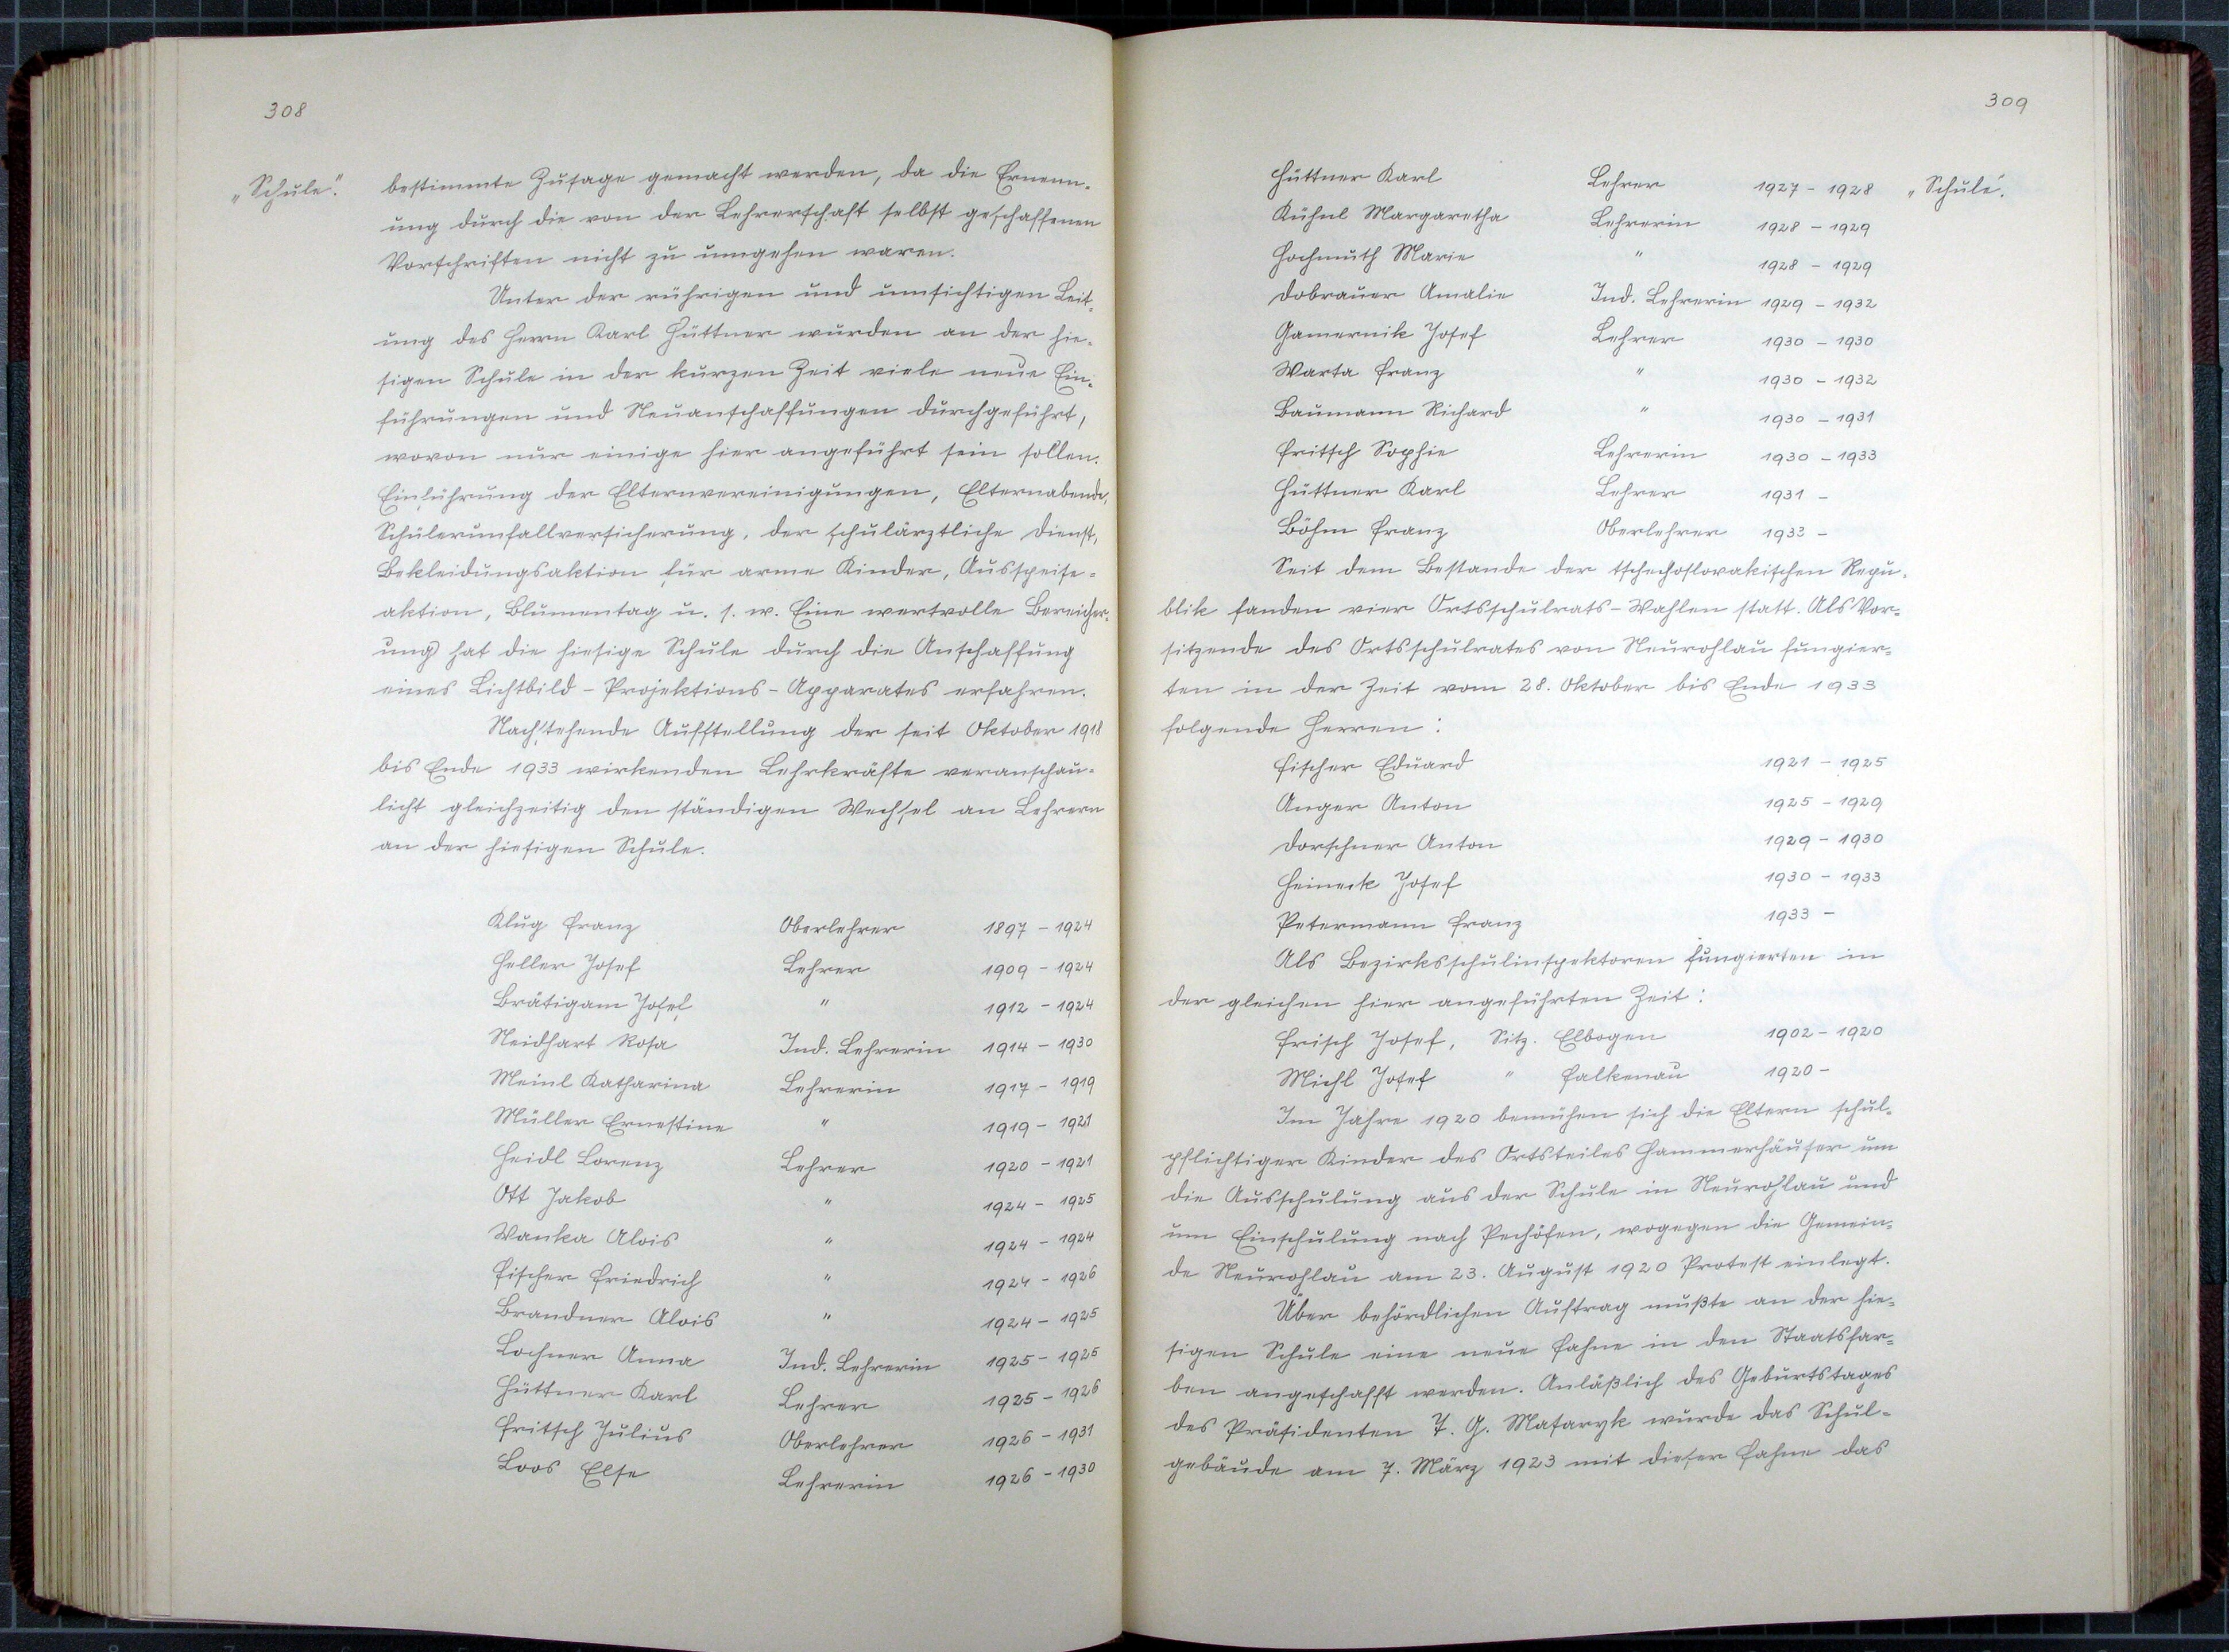 308
„Schule“.
bestimmte Zusage gemacht werden, da die Ernenn-
ung durch die von der Lehrerschaft selbst geschaffenen
Vorschriften nicht zu umgehen waren.
Unter der rührigen und umsichtigen Leit-
ung des Herrn Karl Hüttner wurden an der hie-
sigen Schule in der kurzen Zeit viele neue Ein-
führungen und Neuanschaffungen durchgeführt,
wovon nur einige hier angeführt sein sollen.
Einführung der Elternvereinigungen, Elternabende,
Schülerunfallversicherung, der schulärztliche Dienst,
Bekleidungsaktion für arme Kinder, Ausspeise-
aktion, Blumentag u. s. w. Eine wertvolle Bereicher-
ung hat die hiesige Schule durch die Anschaffung
eines Lichtbild-Projektions-Apparates erfahren.
Nachstehende Aufstellung der seit Oktober 1918
bis Ende 1933 wirkenden Lehrkräfte veranschau-
licht gleichzeitig den ständigen Wechsel an Lehrern
an der hiesigen Schule.
Klug Franz Oberlehrer 1897 - 1924
Heller Josef Lehrer 1909 - 1924
Brätigam Josef " 1912 - 1924
Neidhart Rosa Ind. Lehrerin 1914 - 1930
Meinl Katharina Lehrerin 1917 - 1919
Müller Ernestine " 1919 - 1921
Heidl Lorenz Lehrer 1920 - 1921
Ott Jakob " 1924 - 1925
Wanka Alois " 1924 - 1924
Fischer Friedrich " 1924 - 1926
Brandner Alois " 1924 - 1925
Lochner Anna Ind. Lehrerin 1925 - 1925
Hüttner Karl Lehrer 1925 - 1926
Fritsch Julius Oberlehrer 1926 - 1931
Loos Else Lehrerin 1926 - 1930
309
„Schule“.
Hüttner Karl Lehrer 1927 - 1928
Kühnl Margaretha Lehrerin 1928 - 1929
Hochmuth Marie " 1928 - 1929
Dobrauer Amalie Ind. Lehrerin 1929 - 1932
Gamernik Josef Lehrer 1930 - 1930
Warta Franz " 1930 - 1932
Baumann Richard " 1930 - 1931
Fritsch Sophie Lehrerin 1930 - 1933
Hüttner Karl Lehrer 1931 -
Böhm Franz Oberlehrer 1933 -
Seit dem Bestande der tschechoslovakischen Repu-
blik fanden vier Ortsschulrats-Wahlen statt. Als Vor-
sitzende des Ortsschulrates von Neurohlau fungier-
ten in der Zeit vom 28. Oktober bis Ende 1933
folgende Herren:
Fischer Eduard 1921 - 1925
Anger Anton 1925 - 1929
Dorschner Anton 1929 - 1930
Heineck Josef 1930 - 1933
Petermann Franz 1933 -
Als Bezirksschulinspektoren fungierten in
der gleichen hier angeführten Zeit:
Frisch Josef, Sitz. Elbogen 1902 - 1920
Michl Josef " Falkenau 1920 -
Im Jahre 1920 bemühen sich die Eltern schul-
pflichtiger Kinder des Ortsteiles Hammerhäuser um
die Ausschulung aus der Schule in Neurohlau und
um Einschulung nach Pechöfen, wogegen die Gemein-
de Neurohlau am 23. August 1920 Protest einlegt.
Über behördlichen Auftrag mußte an der hie-
sigen Schule eine neue Fahne in den Staatsfar-
ben angeschafft werden. Anläßlich des Geburtstages
des Präsidenten T. G. Masaryk wurde das Schul-
gebäude am 7. März 1923 mit dieser Fahne das